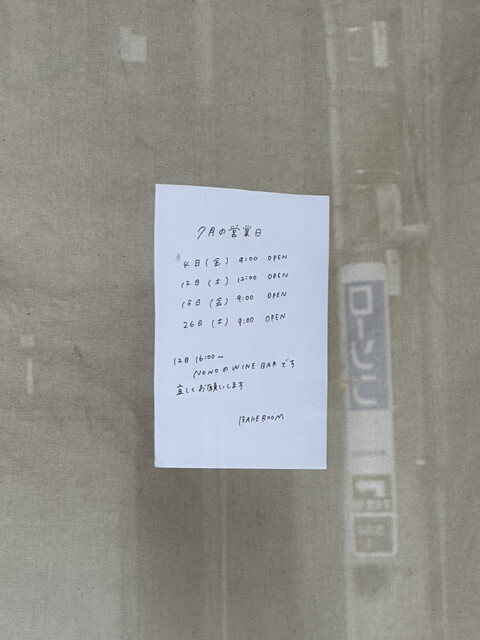 7月の営業日
4日(金) 9:00 OPEN
12日(土) 12:00 OPEN
18日(金) 9:00 OPEN
26日(土) 9:00 OPEN
12日 16:00～
NONOのWINE BARです
宜しくお願いします
BAKEROOM
ローソン